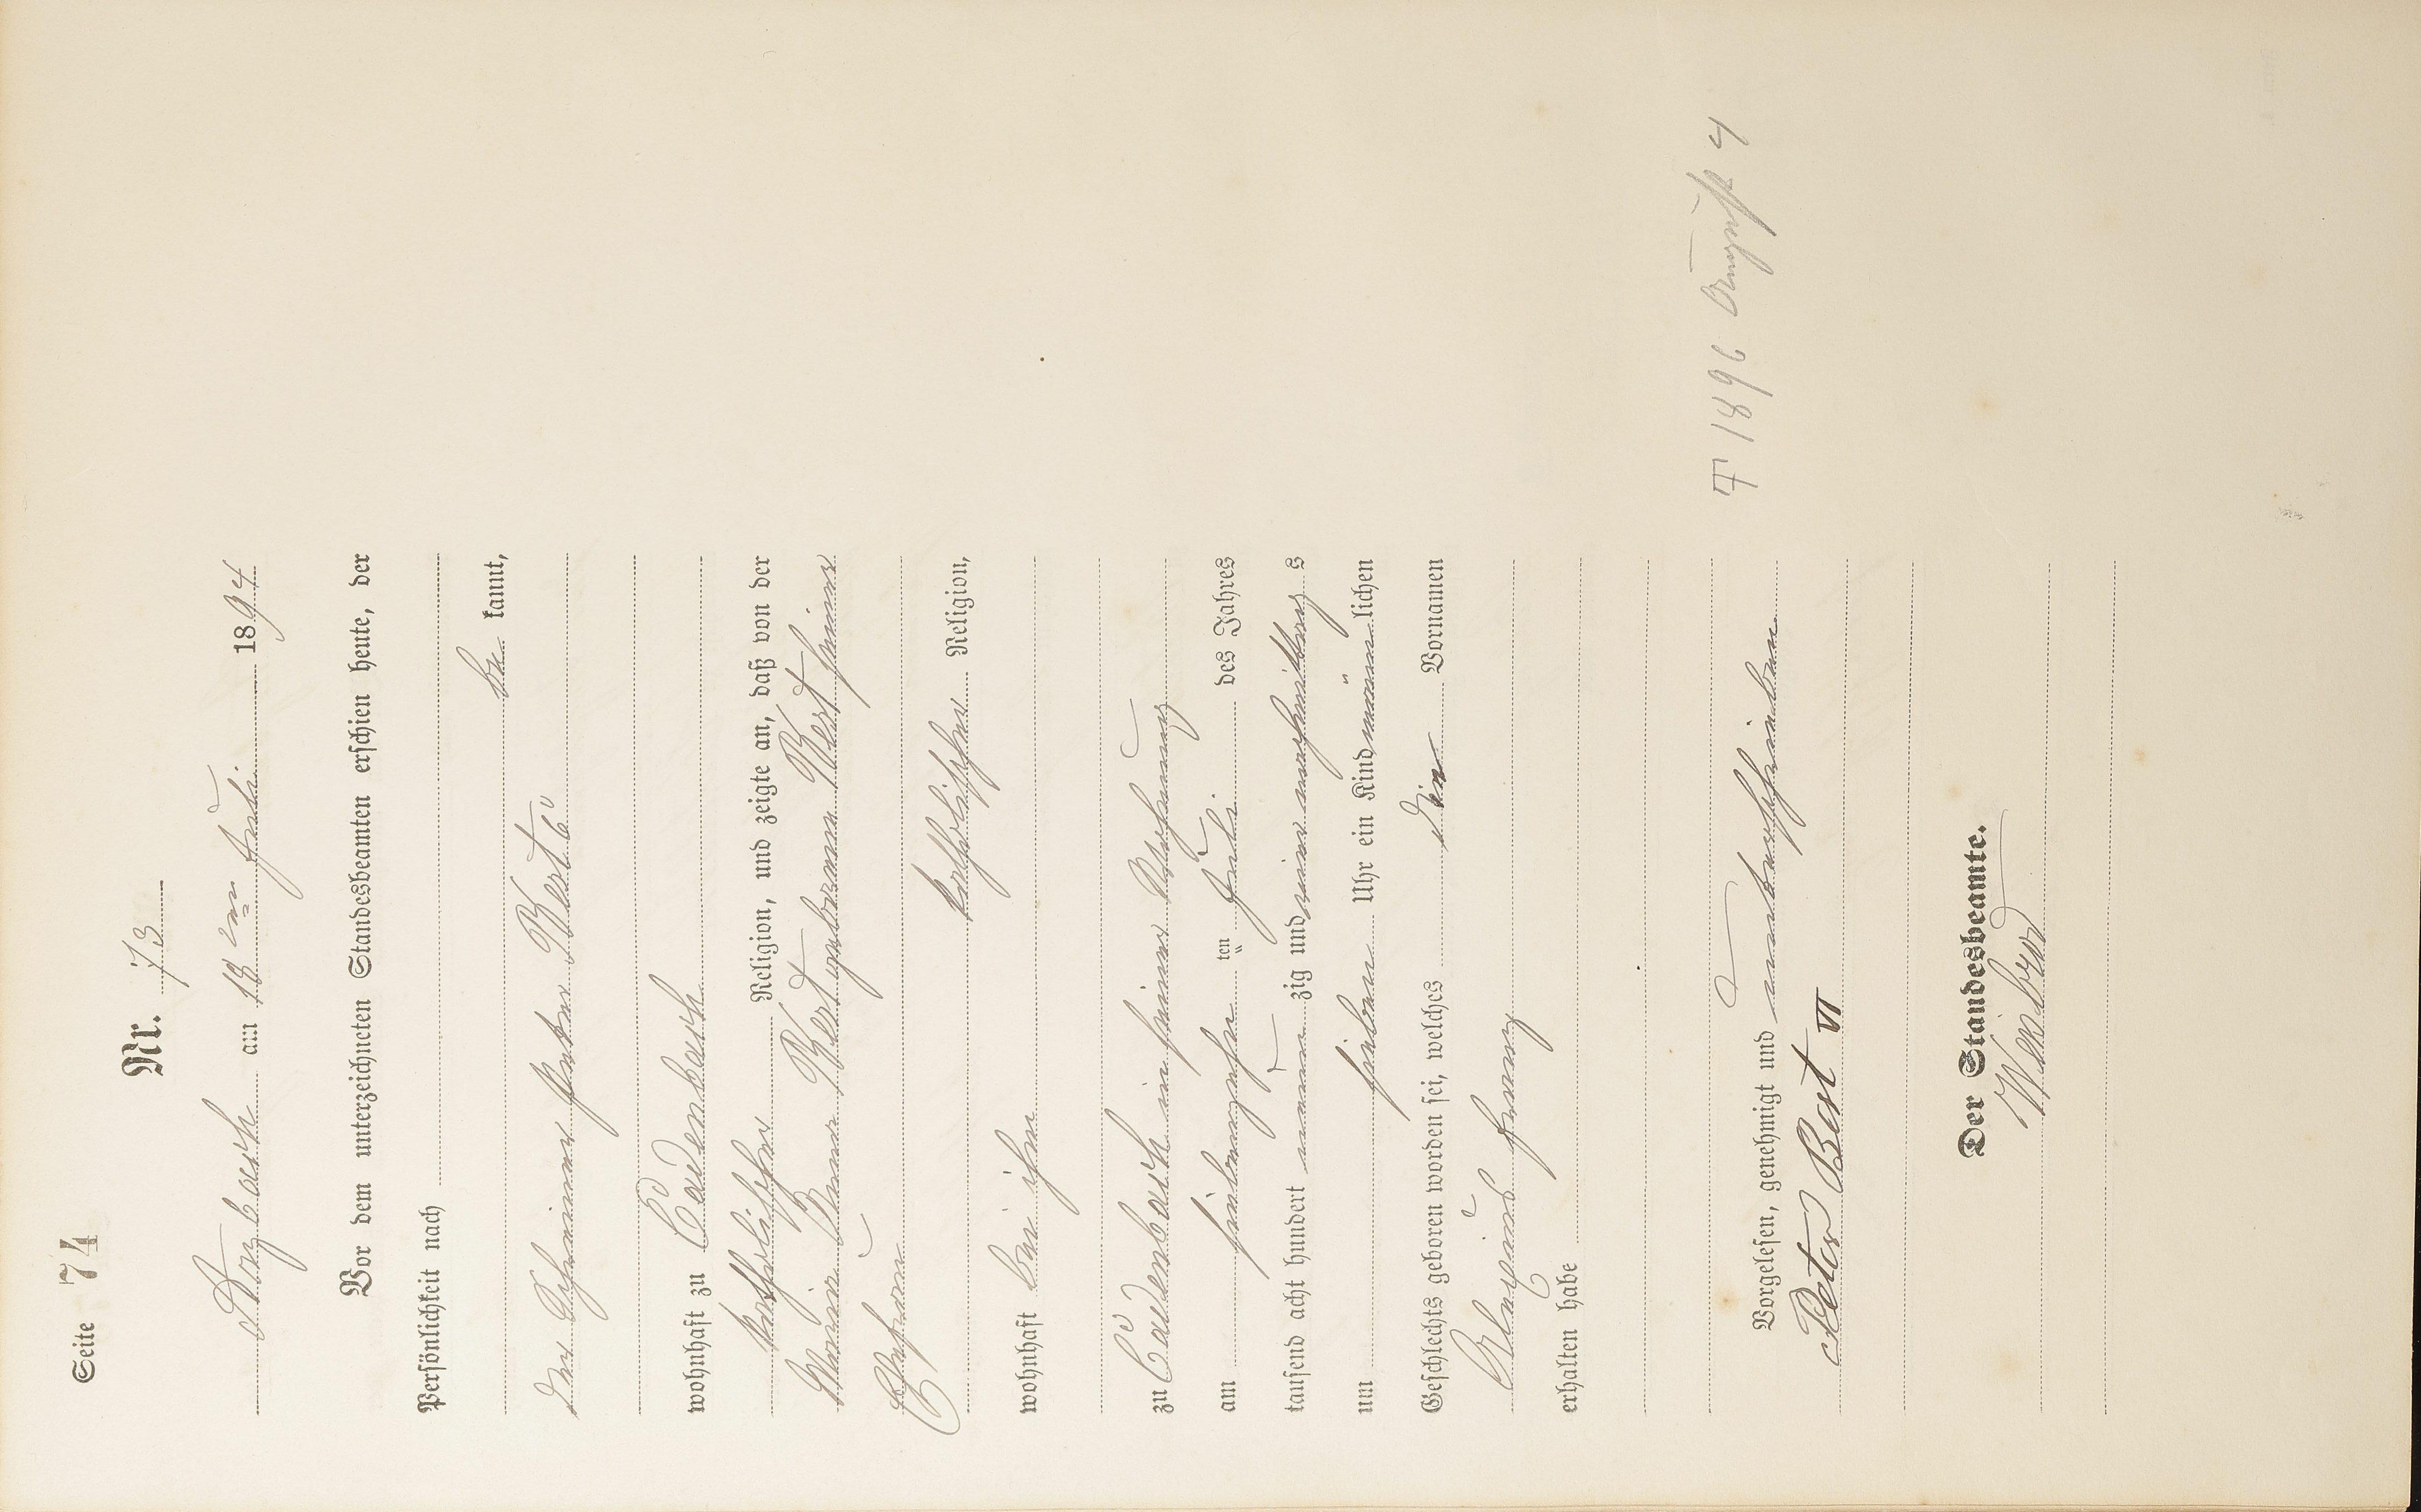 Seite 74
Nr. 73
Arzbach am 18ten Juli 1894
Vor dem unterzeichneten Standesbeamten erschien heute, der
Persönlichkeit nach
be kannt,
der Peter Best 6''
wohnhaft zu Cadenbach
katholischer Religion, und zeigte an, daß von der
Maria Anna Best geborenen Best seiner
Ehefrau
katholischer Religion,
wohnhaft bei ihm
zu Cadenbach in seiner Wohnung
am siebenzehn ten Juli des Jahres
tausend acht hundert neun zig und vier nachmittag s
um sieben Uhr ein Kind männ lichen
Geschlechts geboren worden sei, welches die Vornamen
Franz
erhalten habe
† 1896 August 4
Vorgelesen, genehmigt und unterschrieben
Peter Best VI
Der Standesbeamte.